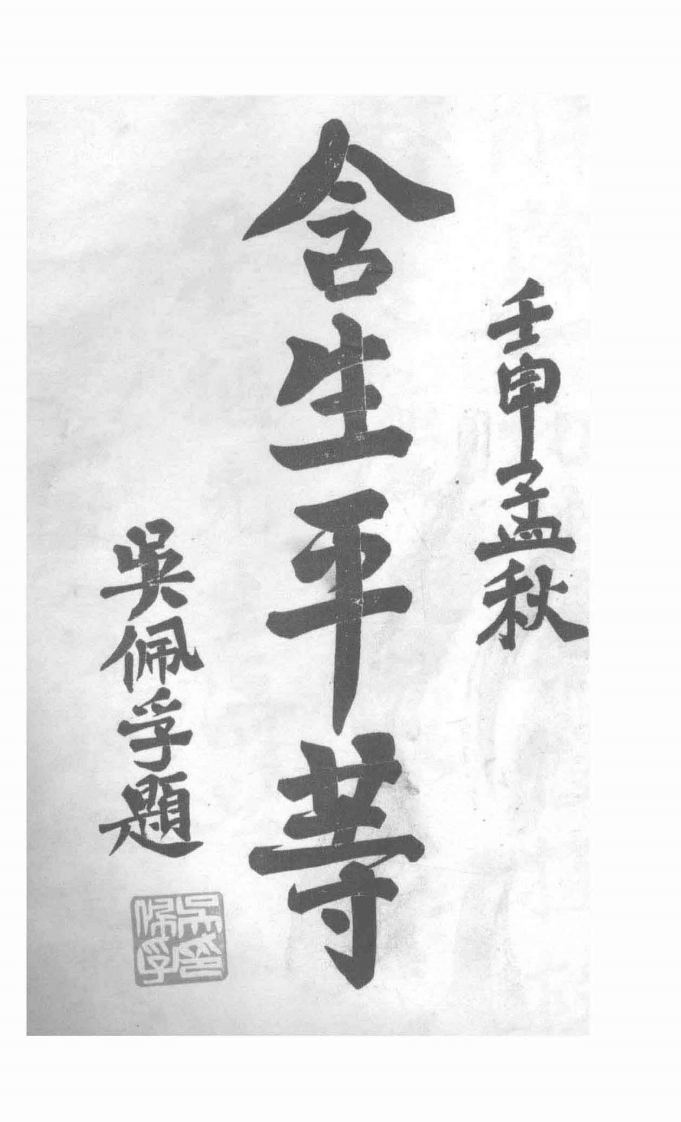 壬申孟秋
含生平等
吳佩孚題
吳佩孚印